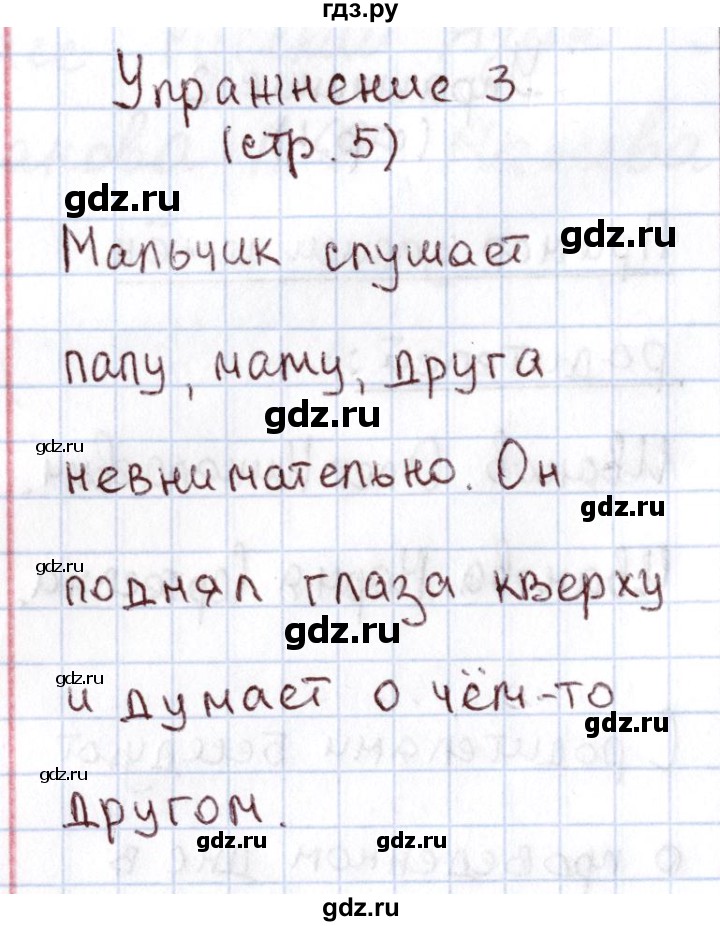 гдз.ру
Упражнение 3
(стр. 5)
gdz.ru
Мальчик слушает
gdz.ru
папу, маму, друга
gdz.ru
gdz.ru
невнимательно. Он
gdz.ru
gdz.ru
поднял глаза кверху
gdz.ru
gdz.ru
и думает о чём-то
gdz.ru
gdz.ru
другом.
gdz.ru
gdz.ru
gdz.ru